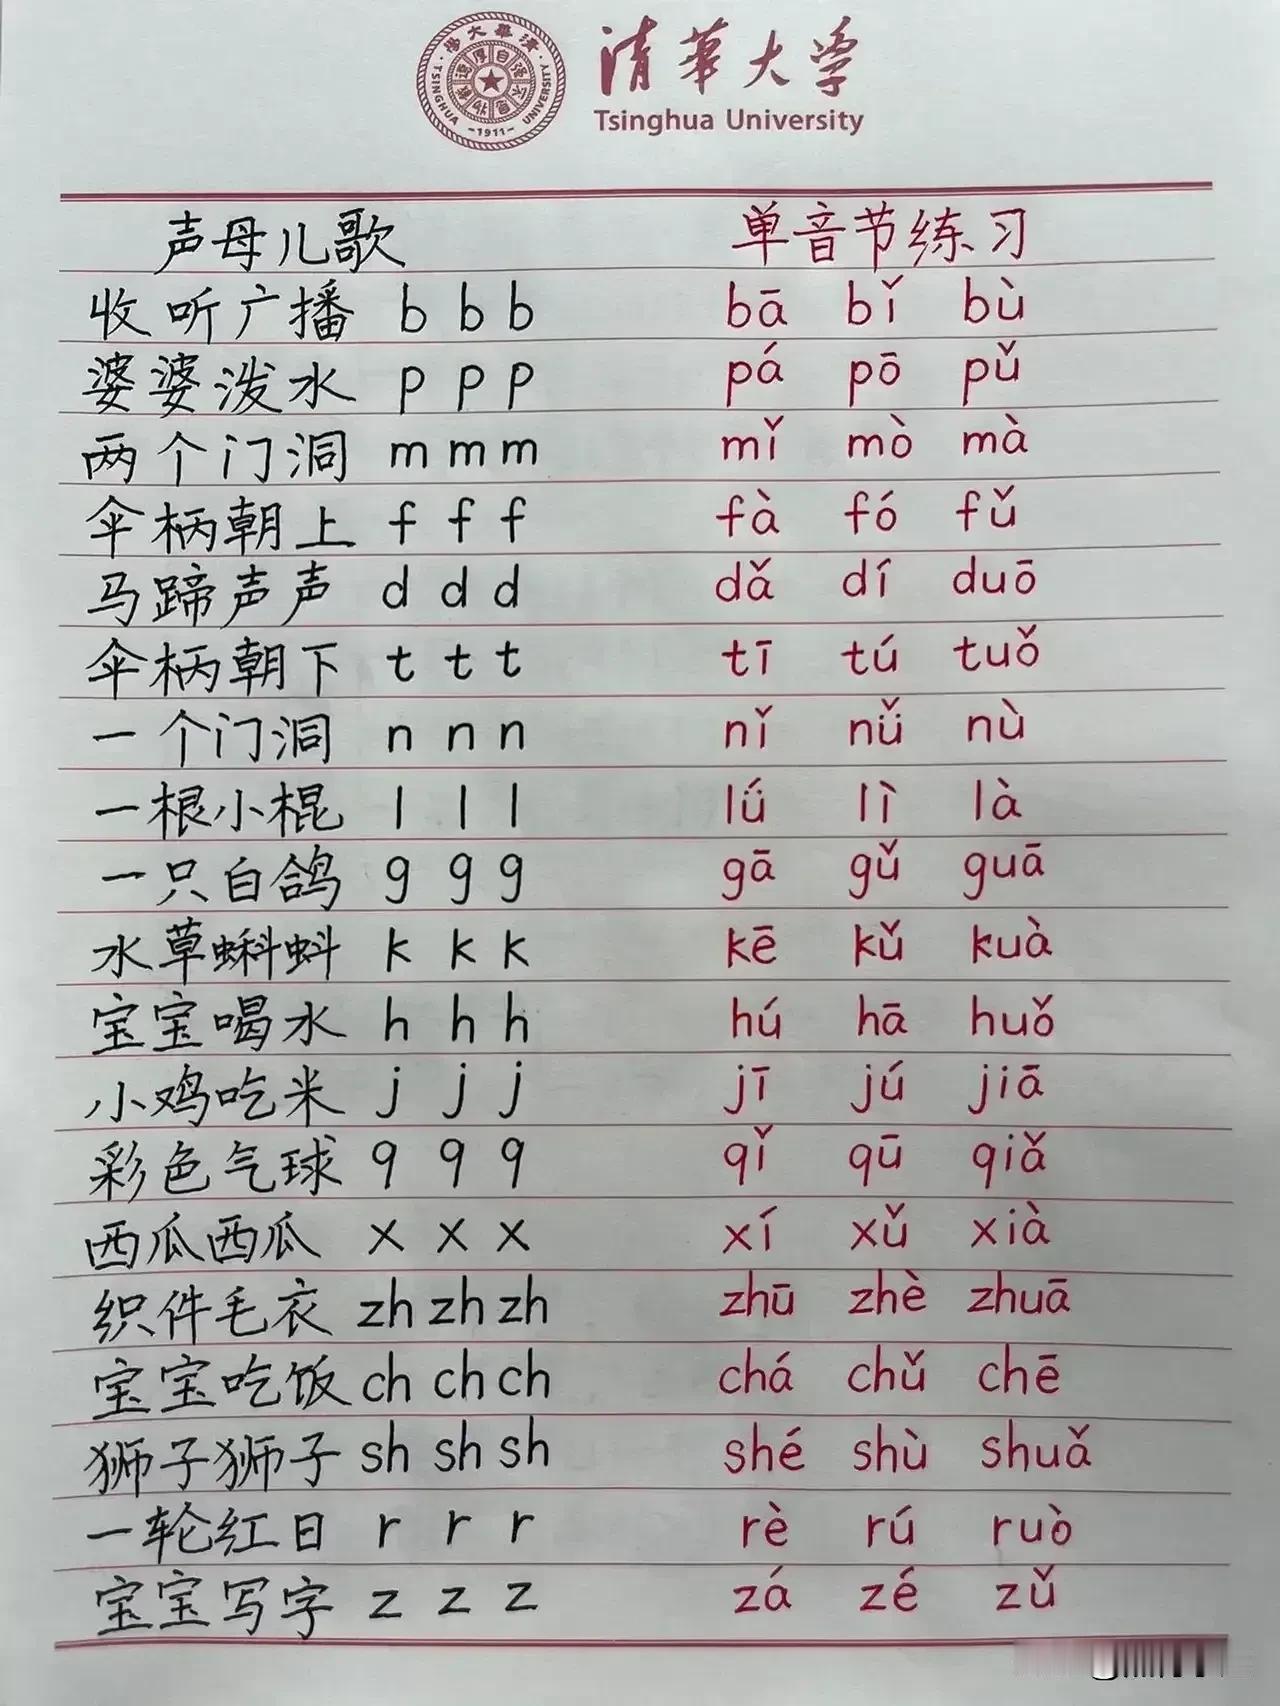 清華大学
Tsinghua University
TSINGHUA UNIVERSITY
-1911-
声母儿歌 单音节练习
收听广播 b b b bā bǐ bù
婆婆泼水 p p p pá pō pǔ
两个门洞 m m m mǐ mò mà
伞柄朝上 f f f fà fó fǔ
马蹄声声 d d d dǎ dí duō
伞柄朝下 t t t tī tú tuǒ
一个门洞 n n n nǐ nǚ nù
一根小棍 l l l lǘ lì là
一只白鸽 g g g gā gǔ guā
水草蝌蚪 k k k kē kǔ kuà
宝宝喝水 h h h hú hā huǒ
小鸡吃米 j j j jī jú jiā
彩色气球 q q q qǐ qū qiǎ
西瓜西瓜 x x x xí xǔ xià
织件毛衣 zh zh zh zhū zhè zhuā
宝宝吃饭 ch ch ch chá chǔ chē
狮子狮子 sh sh sh shé shù shuǎ
一轮红日 r r r rè rú ruò
宝宝写字 z z z zá zé zǔ